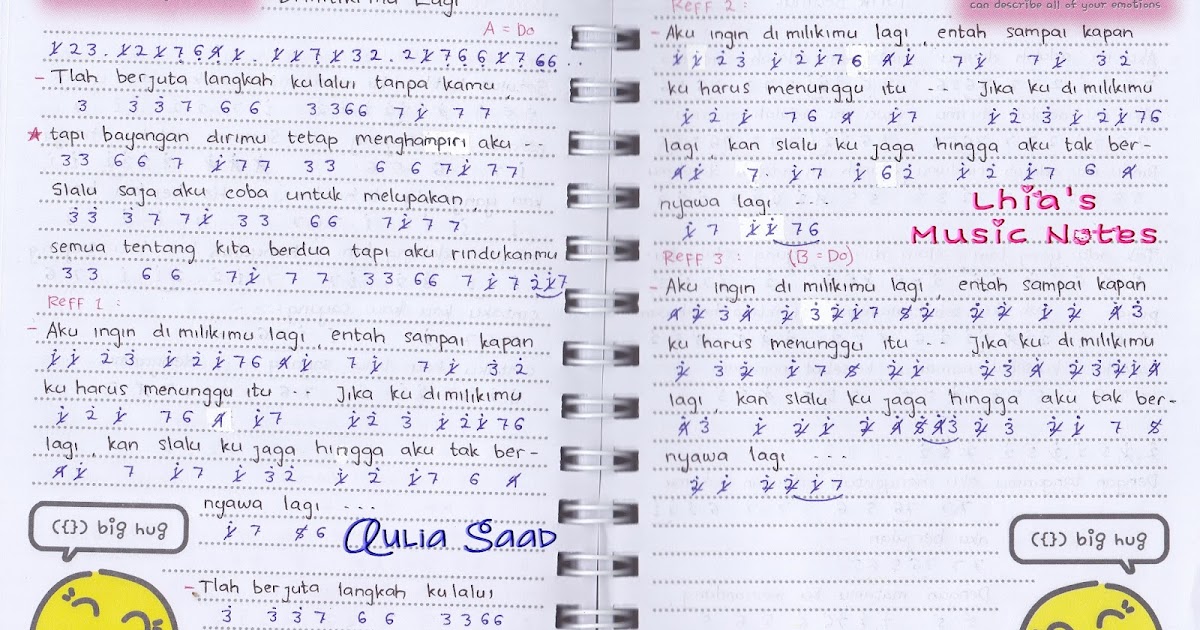 Lagi
A = Do
1 2 3 . 1 2 1 7 6 4 1 . 1 1 7 1 3 2 . 2 1 7 6 6 1 7 . 6 6 . .
- Tlah berjuta langkah ku lalui tanpa kamu
3 3 3 7 6 6 3 3 6 6 7 1 7 7
★ tapi bayangan dirimu tetap menghampiri aku - -
3 3 6 6 7 1 7 7 3 3 6 6 7 1 7 7
Slalu saja aku coba untuk melupakan,
3 3 3 7 7 1 3 3 6 6 7 1 7 7
semua tentang kita berdua tapi aku rindukanmu
3 3 6 6 7 1 7 7 3 3 6 6 7 1 7 2 1 7
Reff 1 :
- Aku ingin di milikimu lagi, entah sampai kapan
1 1 2 3 1 2 1 7 6 4 1 7 1 7 1 3 2
ku harus menunggu itu - - Jika ku dimilikimu
1 2 1 7 6 4 1 7 1 2 3 1 2 1 7 6
lagi, kan slalu ku jaga hingga aku tak ber -
4 1 7 1 7 1 3 2 1 2 1 7 6 4
nyawa lagi - - -
1 7 5 6
Aulia Saad
({}) big hug
- Tlah berjuta langkah ku lalui
3 3 3 7 6 6 3 3 6 6
can describe all of your emotions
Reff 2 :
- Aku ingin di milikimu lagi, entah sampai kapan
1 1 2 3 1 2 1 7 6 4 1 7 1 7 1 3 2
ku harus menunggu itu - - Jika ku di milikimu
1 2 1 7 6 4 1 7 1 2 3 1 2 1 7 6
lagi, kan slalu ku jaga hingga aku tak ber -
4 1 7 . 1 7 1 6 2 1 2 1 7 6 4
nyawa lagi - - -
1 7 1 1 7 6
Lhia's
Music Notes
Reff 3 : (B = Do)
- Aku ingin di milikimu lagi, entah sampai kapan
4 2 3 4 2 3 2 1 7 5 2 2 2 1 2 4 3
ku harus menunggu itu - - Jika ku di milikimu
2 3 2 1 7 5 2 1 2 3 4 2 3 2 1 4
lagi, kan slalu ku jaga hingga aku tak ber -
4 3 1 2 1 2 4 5 4 3 2 3 2 1 7 5
nyawa lagi - - -
2 1 2 2 1 7
({}) big hug